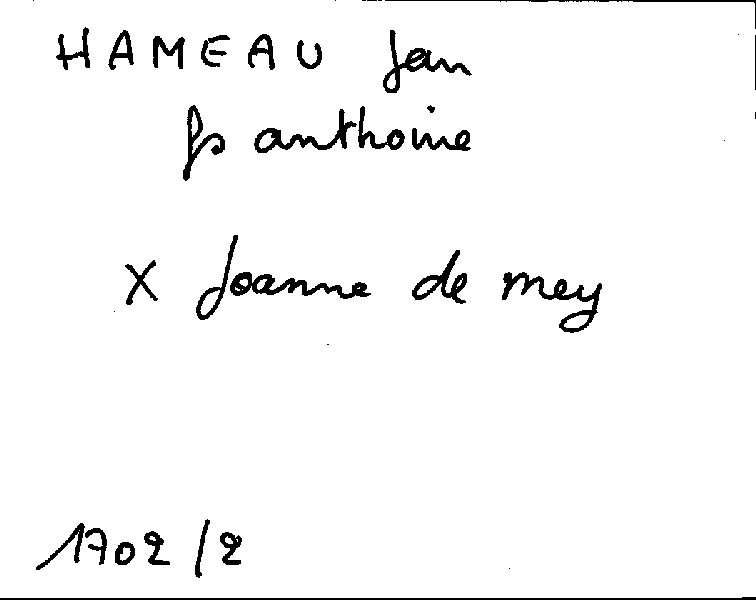 HAMEAU Jan
fs anthoine
X Joanne de mey
1702/2